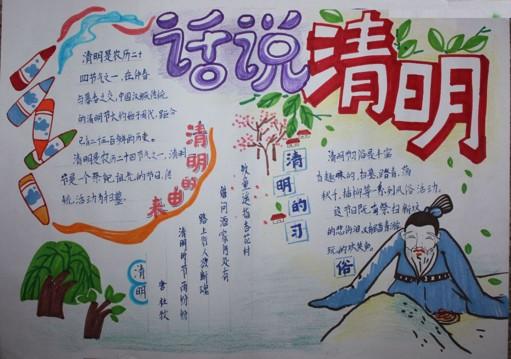 话说清明
清明是农历二十
四节气之一,在仲春
与暮春之交,中国汉族传统
的清明节大约始于周代,距今
已有二千五百多年的历史。
清明是农历二十四节气之一,清明
节是一个祭祀祖先的节日,传
统活动为扫墓。
清明的由来
清明
唐 杜牧
清明时节雨纷纷
路上行人欲断魂
借问酒家何处有
牧童遥指杏花村
清明的习俗
清明习俗是丰富
有趣味的,扫墓、踏青、荡
秋千、插柳等一系列风俗活动。
这节日既有祭扫新坟
的悲伤泪,又有踏青游
玩的欢笑声。